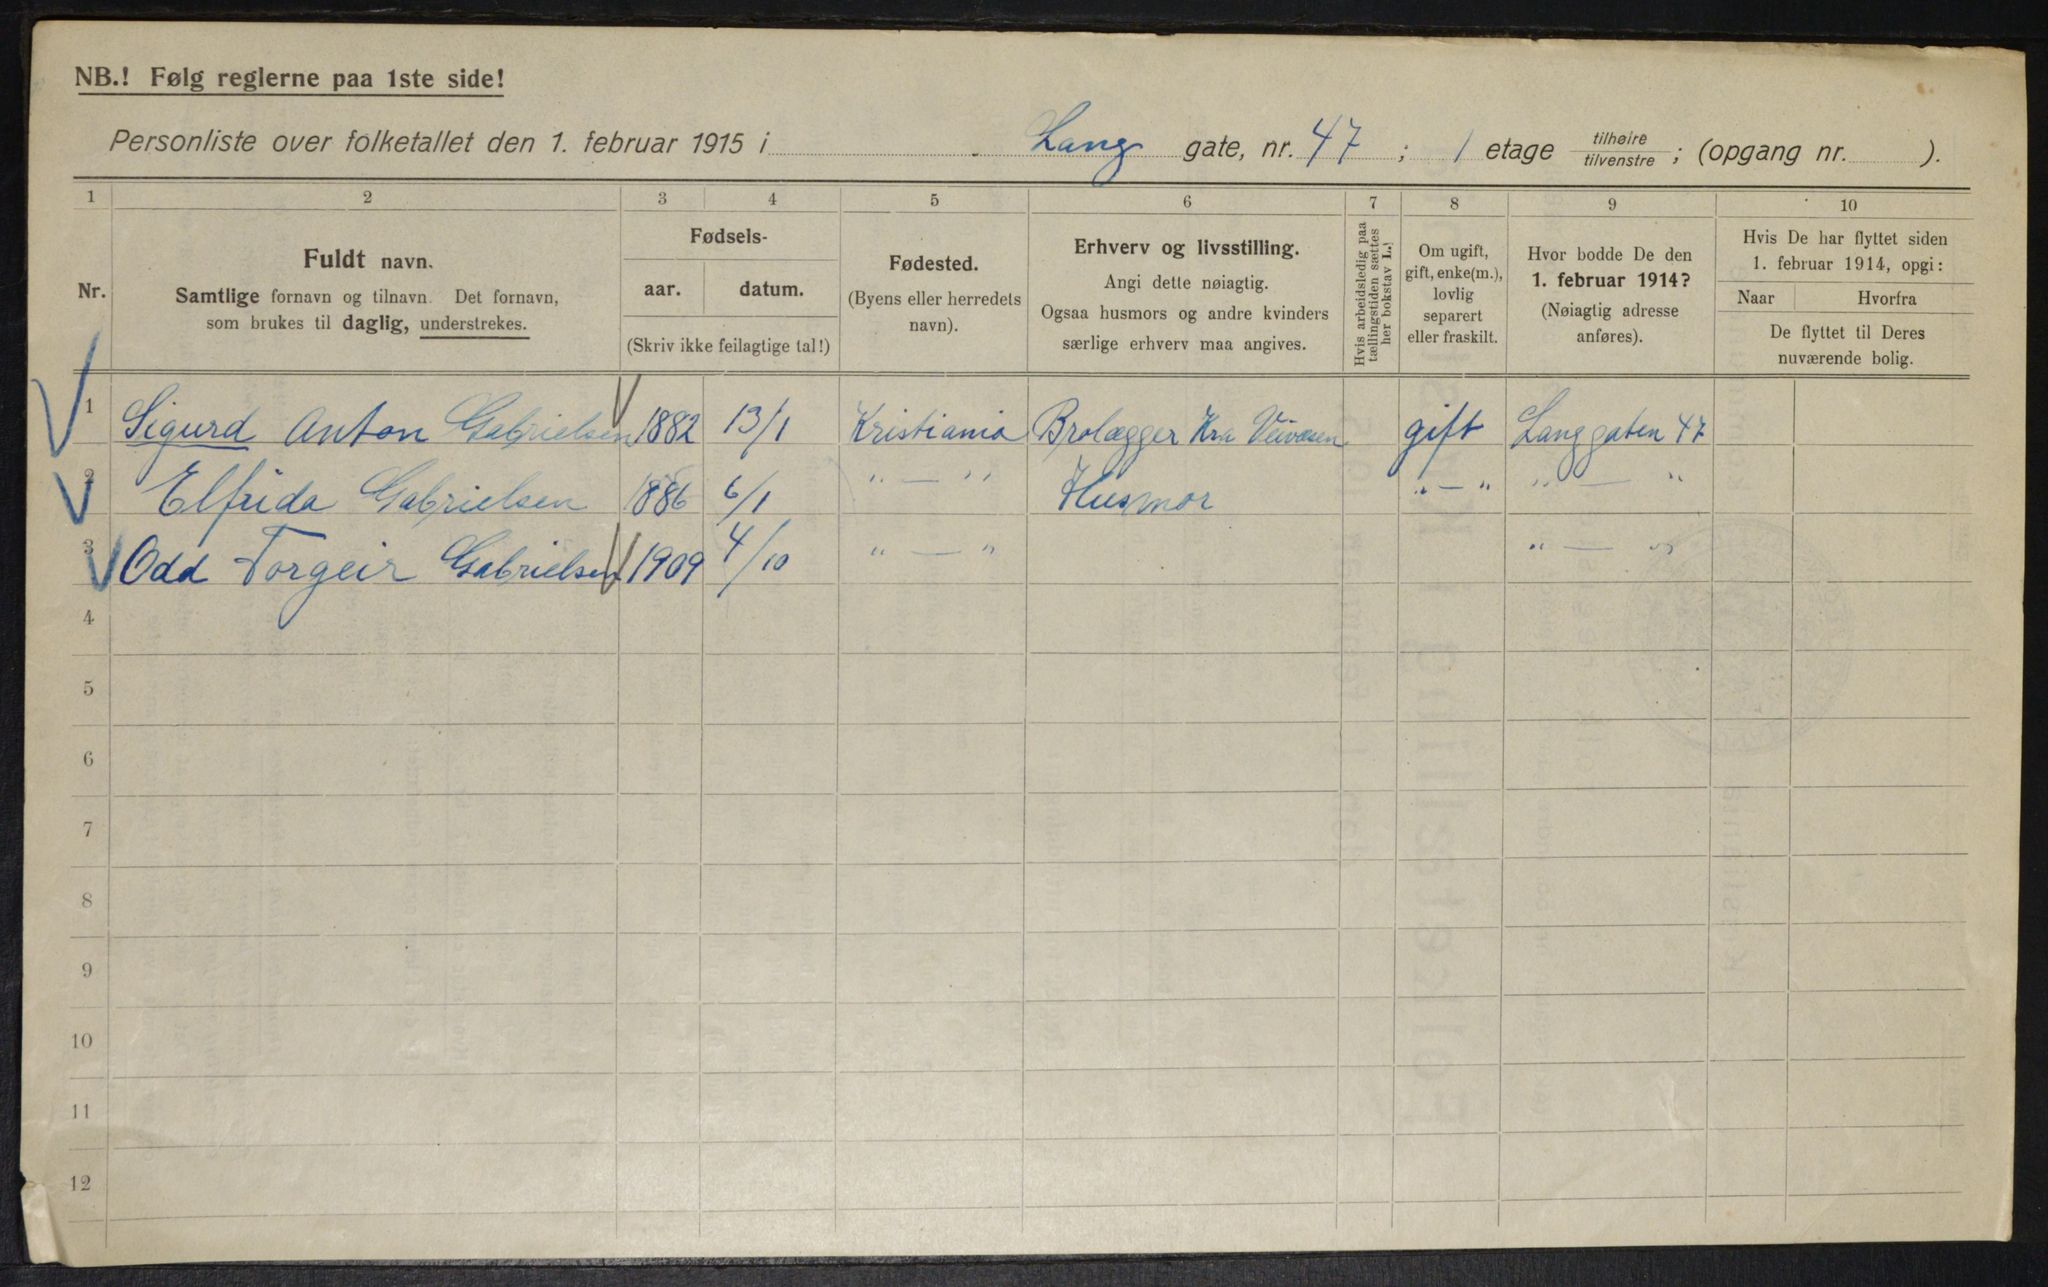 NB.! Følg reglerne paa 1ste side!
Personliste over folketallet den 1. februar 1915 i Lang gate, nr. 47 ; 1 etage tilhøire tilvenstre ; (opgang nr. ).
1 2 3 4 5 6 7 8 9 10
Nr.
Fuldt navn.
Samtlige fornavn og tilnavn. Det fornavn,
som brukes til daglig, understrekes.
Fødsels-
aar. datum.
(Skriv ikke feilagtige tal!)
Fødested.
(Byens eller herredets
navn).
Erhverv og livsstilling.
Angi dette nøiagtig.
Ogsaa husmors og andre kvinders
særlige erhverv maa angives.
Hvis arbeidsledig paa
tællingstiden sættes
her bokstav L.!
Om ugift,
gift, enke(m.),
lovlig
separert
eller fraskilt.
Hvor bodde De den
1. februar 1914?
(Nøiagtig adresse
anføres).
Hvis De har flyttet siden
1. februar 1914, opgi:
Naar Hvorfra
De flyttet til Deres
nuværende bolig.
1 Sigurd Anton Gabrielsen 1882 13/1 Kristiania Brolægger Kra Veivæsen gift Langgaten 47
2 Elfrida Gabrielsen 1886 6/1 " — " Husmor " — " " — "
3 Odd Torgeir Gabrielsen 1909 4/10 " — " " — "
4
5
6
7
8
9
10
11
12